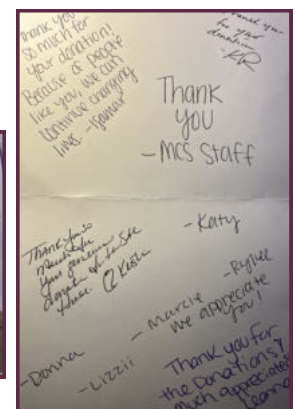 Thank you
so much for
your donation!
Because of people
like you, we can
continue changing
lives
Thank you
for your
donation
Thank
you
- MCS Staff
Thank you so
your generous
donation
- Katy
- Rylee
- Marcie
we appreciate
you!
- Donna
- Lizzii
Thank you for
the Donations!
much appreciated